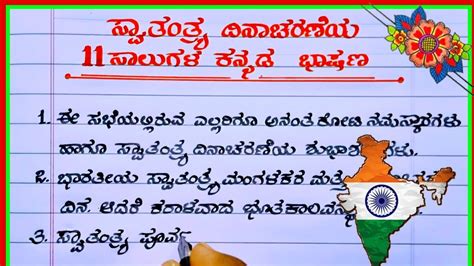 ಸ್ವಾತಂತ್ರ್ಯ ದಿನಾಚರಣೆಯ
11 ಸಾಲುಗಳ ಕನ್ನಡ ಭಾಷಣ
1. ಈ ಸಭೆಯಲ್ಲಿರುವ ಎಲ್ಲರಿಗೂ ಅನಂತ ಕೋಟಿ ನಮಸ್ಕಾರಗಳು
ಹಾಗೂ ಸ್ವಾತಂತ್ರ್ಯ ದಿನಾಚರಣೆಯ
2. ಭಾರತೀಯ ಸ್ವಾತಂತ್ರ್ಯ ಮಂಗಳಕರ
ದಿನ. ಆದರೆ ಕರಾಳವಾದ
3. ಸ್ವಾತಂತ್ರ್ಯ ಪೂರ್ವ